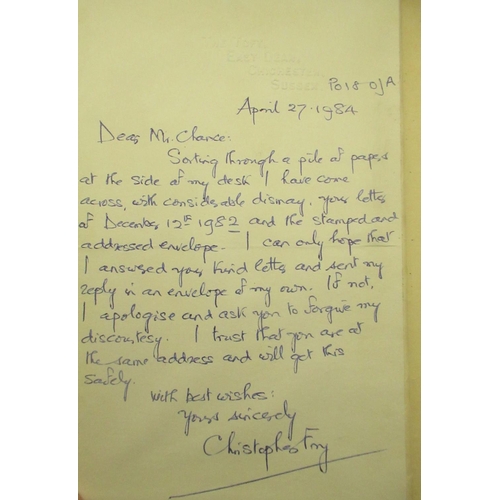 East Dean,
Chichester,
Sussex
PO18 0JA
April 27. 1984
Dear Mr. Chance:
Sorting through a pile of papers
at the side of my desk I have come
across, with considerable dismay, your letter
of December 12th 1982 and the stamped and
addressed envelope. I can only hope that
I answered your kind letter and sent my
reply in an envelope of my own. If not,
I apologise and ask you to forgive my
discourtesy. I trust that you are at
the same address and will get this
safely.
With best wishes:
Yours sincerely
Christopher Fry